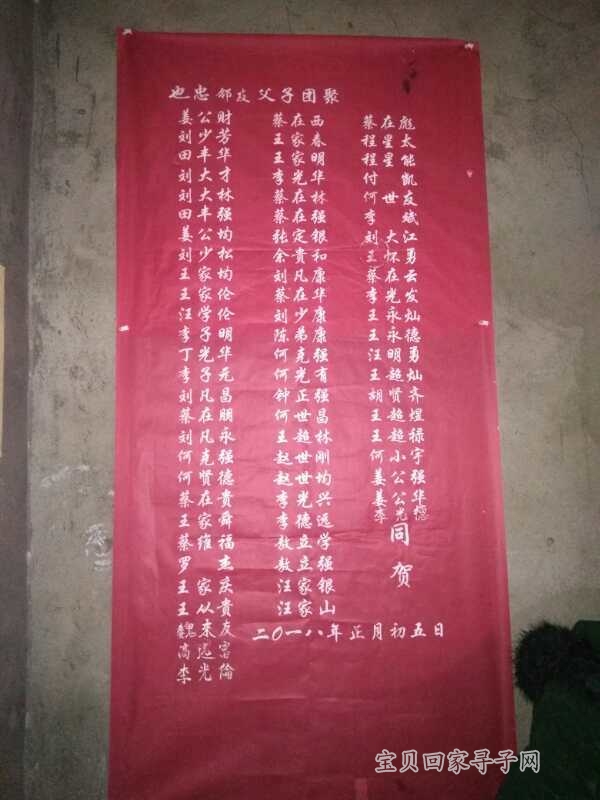 也忠 邻友父子团聚
姜公财
刘少芳
田丰华
刘大才
刘大林
田丰强
姜公均
刘少松
王家均
王家伦
汪学伦
李子明
丁光华
李子元
刘凡昌
蔡在朋
刘凡永
何克强
何贤德
蔡在贵
王家舜
蔡维福
罗 杰
王家庆
王从贵
魏来友
高远富
李光倫
蔡在西
王家春
王家明
李光华
蔡在林
蔡在强
张定银
余贵和
刘凡康
蔡在华
刘少康
陈弟康
何克强
何光有
钟正强
何世昌
王超林
赵世刚
赵世均
李光兴
李德远
敖立学
敖立强
汪家银
汪家山
蔡在彪
程星太
程星能
付 凯
何世友
李 斌
刘大江
王怀勇
蔡在云
李光发
王永灿
王永德
汪明勇
王超灿
胡贤齐
王超煌
王超禄
何小宇
姜公强
姜公华
李光德
同贺
二〇一八年正月初五日
宝贝回家寻子网